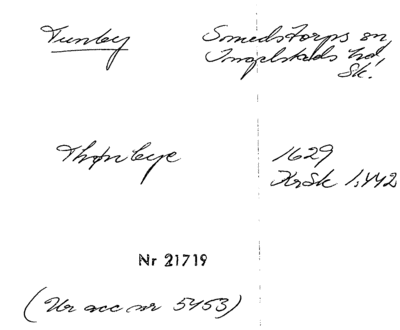 Tunby
Smedstorps sn,
Ingelstads hd
Sk.
Thønbye
1629
KrSk 1:442
Nr 21719
(Ur acc nr 5453)